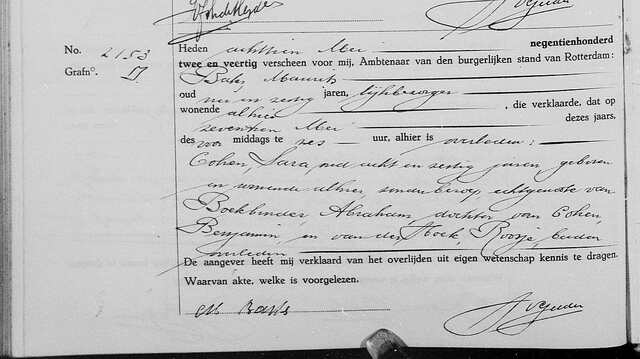 No. 2153
Grafn°. II
Heden achttien Mei negentienhonderd
twee en veertig verscheen voor mij, Ambtenaar van den burgerlijken stand van Rotterdam:
Maurits
oud en zestig jaren, lijkbezorger
wonende alhier, die verklaarde, dat op
zeventien Mei dezes jaars,
des voor middags te zes uur, alhier is overleden:
Cohen, Sara, oud acht en zestig jaren, geboren
en wonende alhier, zonder beroep, echtgenoote van
Boekbinder, Abraham, dochter van Cohen,
Benjamin, en van der Hoek, Roosje, beiden
overleden
De aangever heeft mij verklaard van het overlijden uit eigen wetenschap kennis te dragen.
Waarvan akte, welke is voorgelezen.